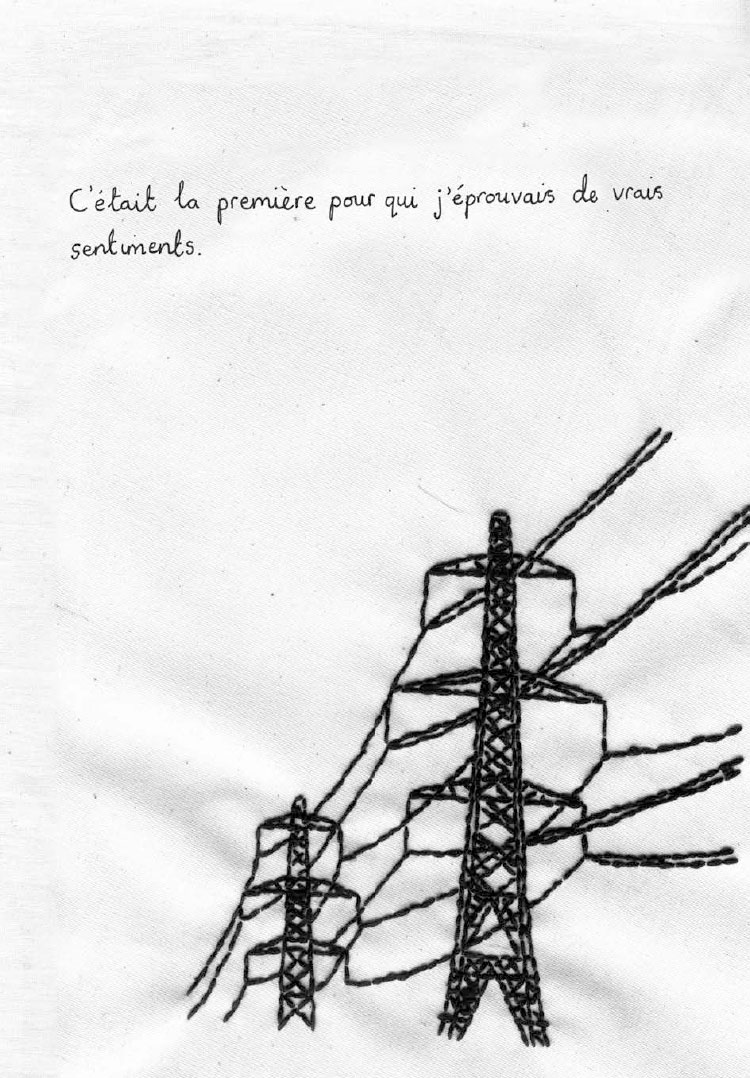 C'était la première pour qui j'éprouvais de vrais
sentiments.